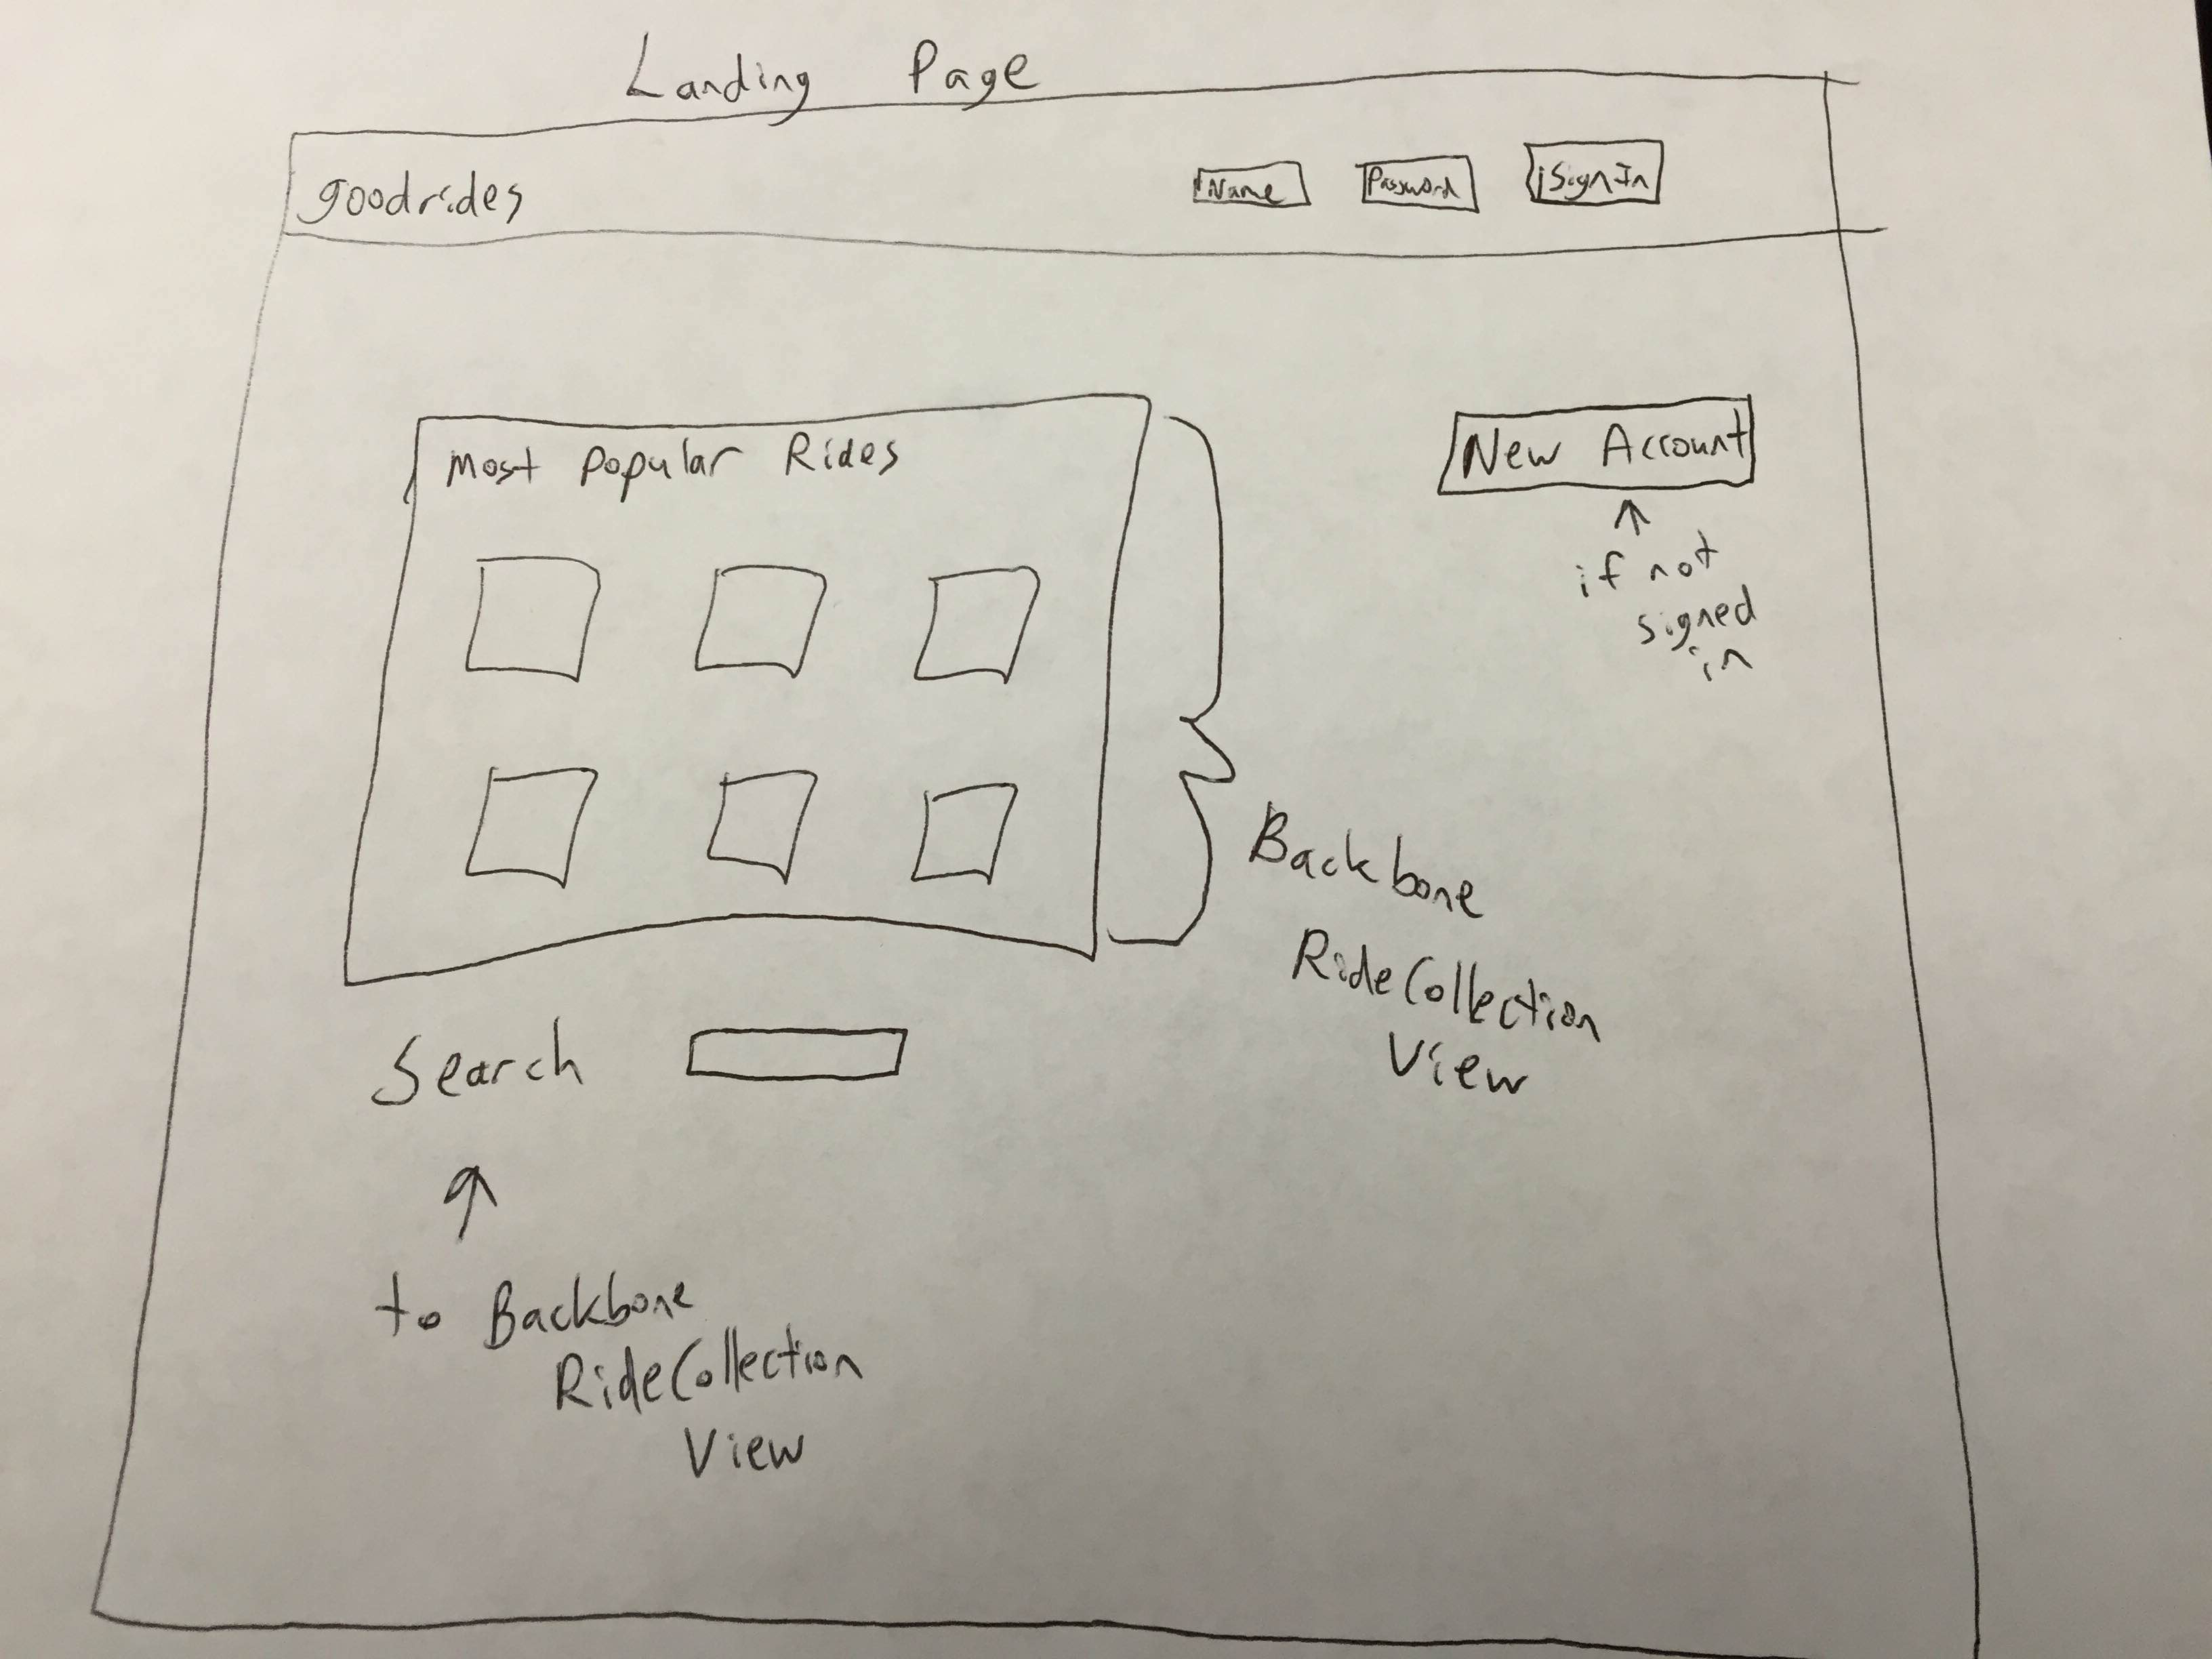 Landing Page
goodrides Name Password Sign In
Most Popular Rides
New Account
if not
signed
in
Backbone
RideCollection
View
Search
to Backbone
RideCollection
View